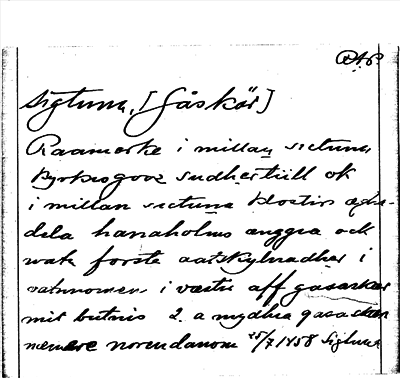 RAP
Sigtuna, [Gåskär]
Raamerke i millan sictuna
Byrkis gooz sudhertiill ok
i millan sictuna klostirs
dela hanaholms ænggia ock
wate forste aatskylnadher i
vatnnomen i væstir aff gasaskær
mit butnis 2. a mydhia gasaskær
norendanom 25/7 1458 Sigtuna